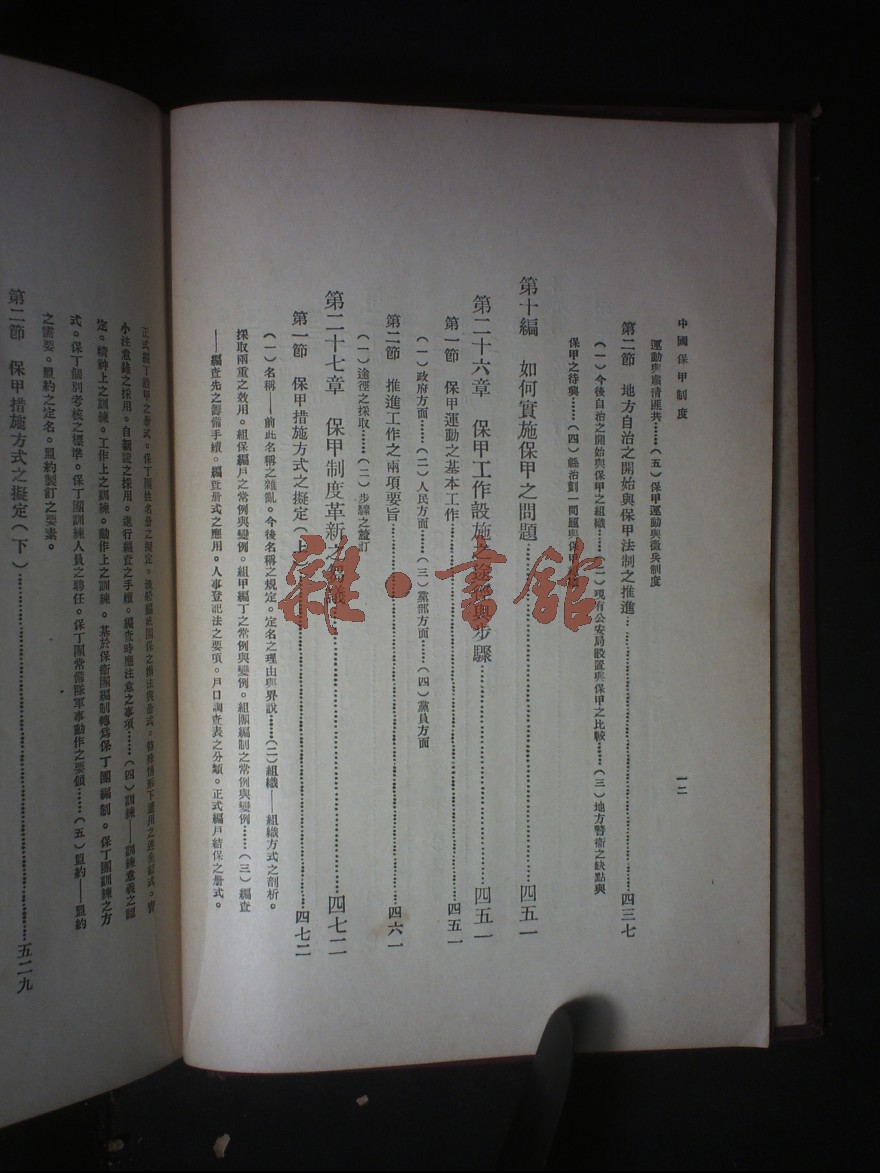 中國保甲制度
一二
運動與肅清匪共……(五)保甲運動與徵兵制度
第二節 地方自治之開始與保甲法制之推進……四三七
(一)今後自治之開始與保甲之組織……(二)現有公安局設置與保甲之比較……(三)地方警衛之缺點與
保甲之待興……(四)縣治劃一問題與保甲
第十編 如何實施保甲之問題……四五一
第二十六章 保甲工作設施之途徑與步驟……四五一
第一節 保甲運動之基本工作……四五一
(一)政府方面……(二)人民方面……(三)黨部方面……(四)黨員方面
第二節 推進工作之兩項要旨……四六一
(一)途徑之採取……(二)步驟之釐訂
第二十七章 保甲制度革新之……四七二
第一節 保甲措施方式之擬定(上)……四七二
(一)名稱——前此名稱之雜亂。今後名稱之規定。定名之理由與界說……(二)組織——組織方式之剖析。
採取兩重之效用。組保編戶之常例與變例。組甲編丁之常例與變例。組團編制之常例與變例……(三)編查
——編查先之籌備手續。編查冊式之應用。人事登記法之要項。戶口調查表之分類。正式編戶結保之冊式。
正式編丁設甲之冊式。保丁團姓名冊之擬定。
小注意錄之採用。自製證之採用。進行編查之手續。編查時應注意之事項……(四)訓練——訓練意義之認
定。精神上之訓練。工作上之訓練。動作上之訓練。基於保衛團編制轉為保丁團編制。保丁團訓練之方
式。保丁個別考核之標準。保丁團訓練人員之聘任。保丁團常備隊軍事動作之要領……(五)盟約——盟約
之需要。盟約之定名。盟約製訂之要素。
第二節 保甲措施方式之擬定(下)……五二九
雜·書館